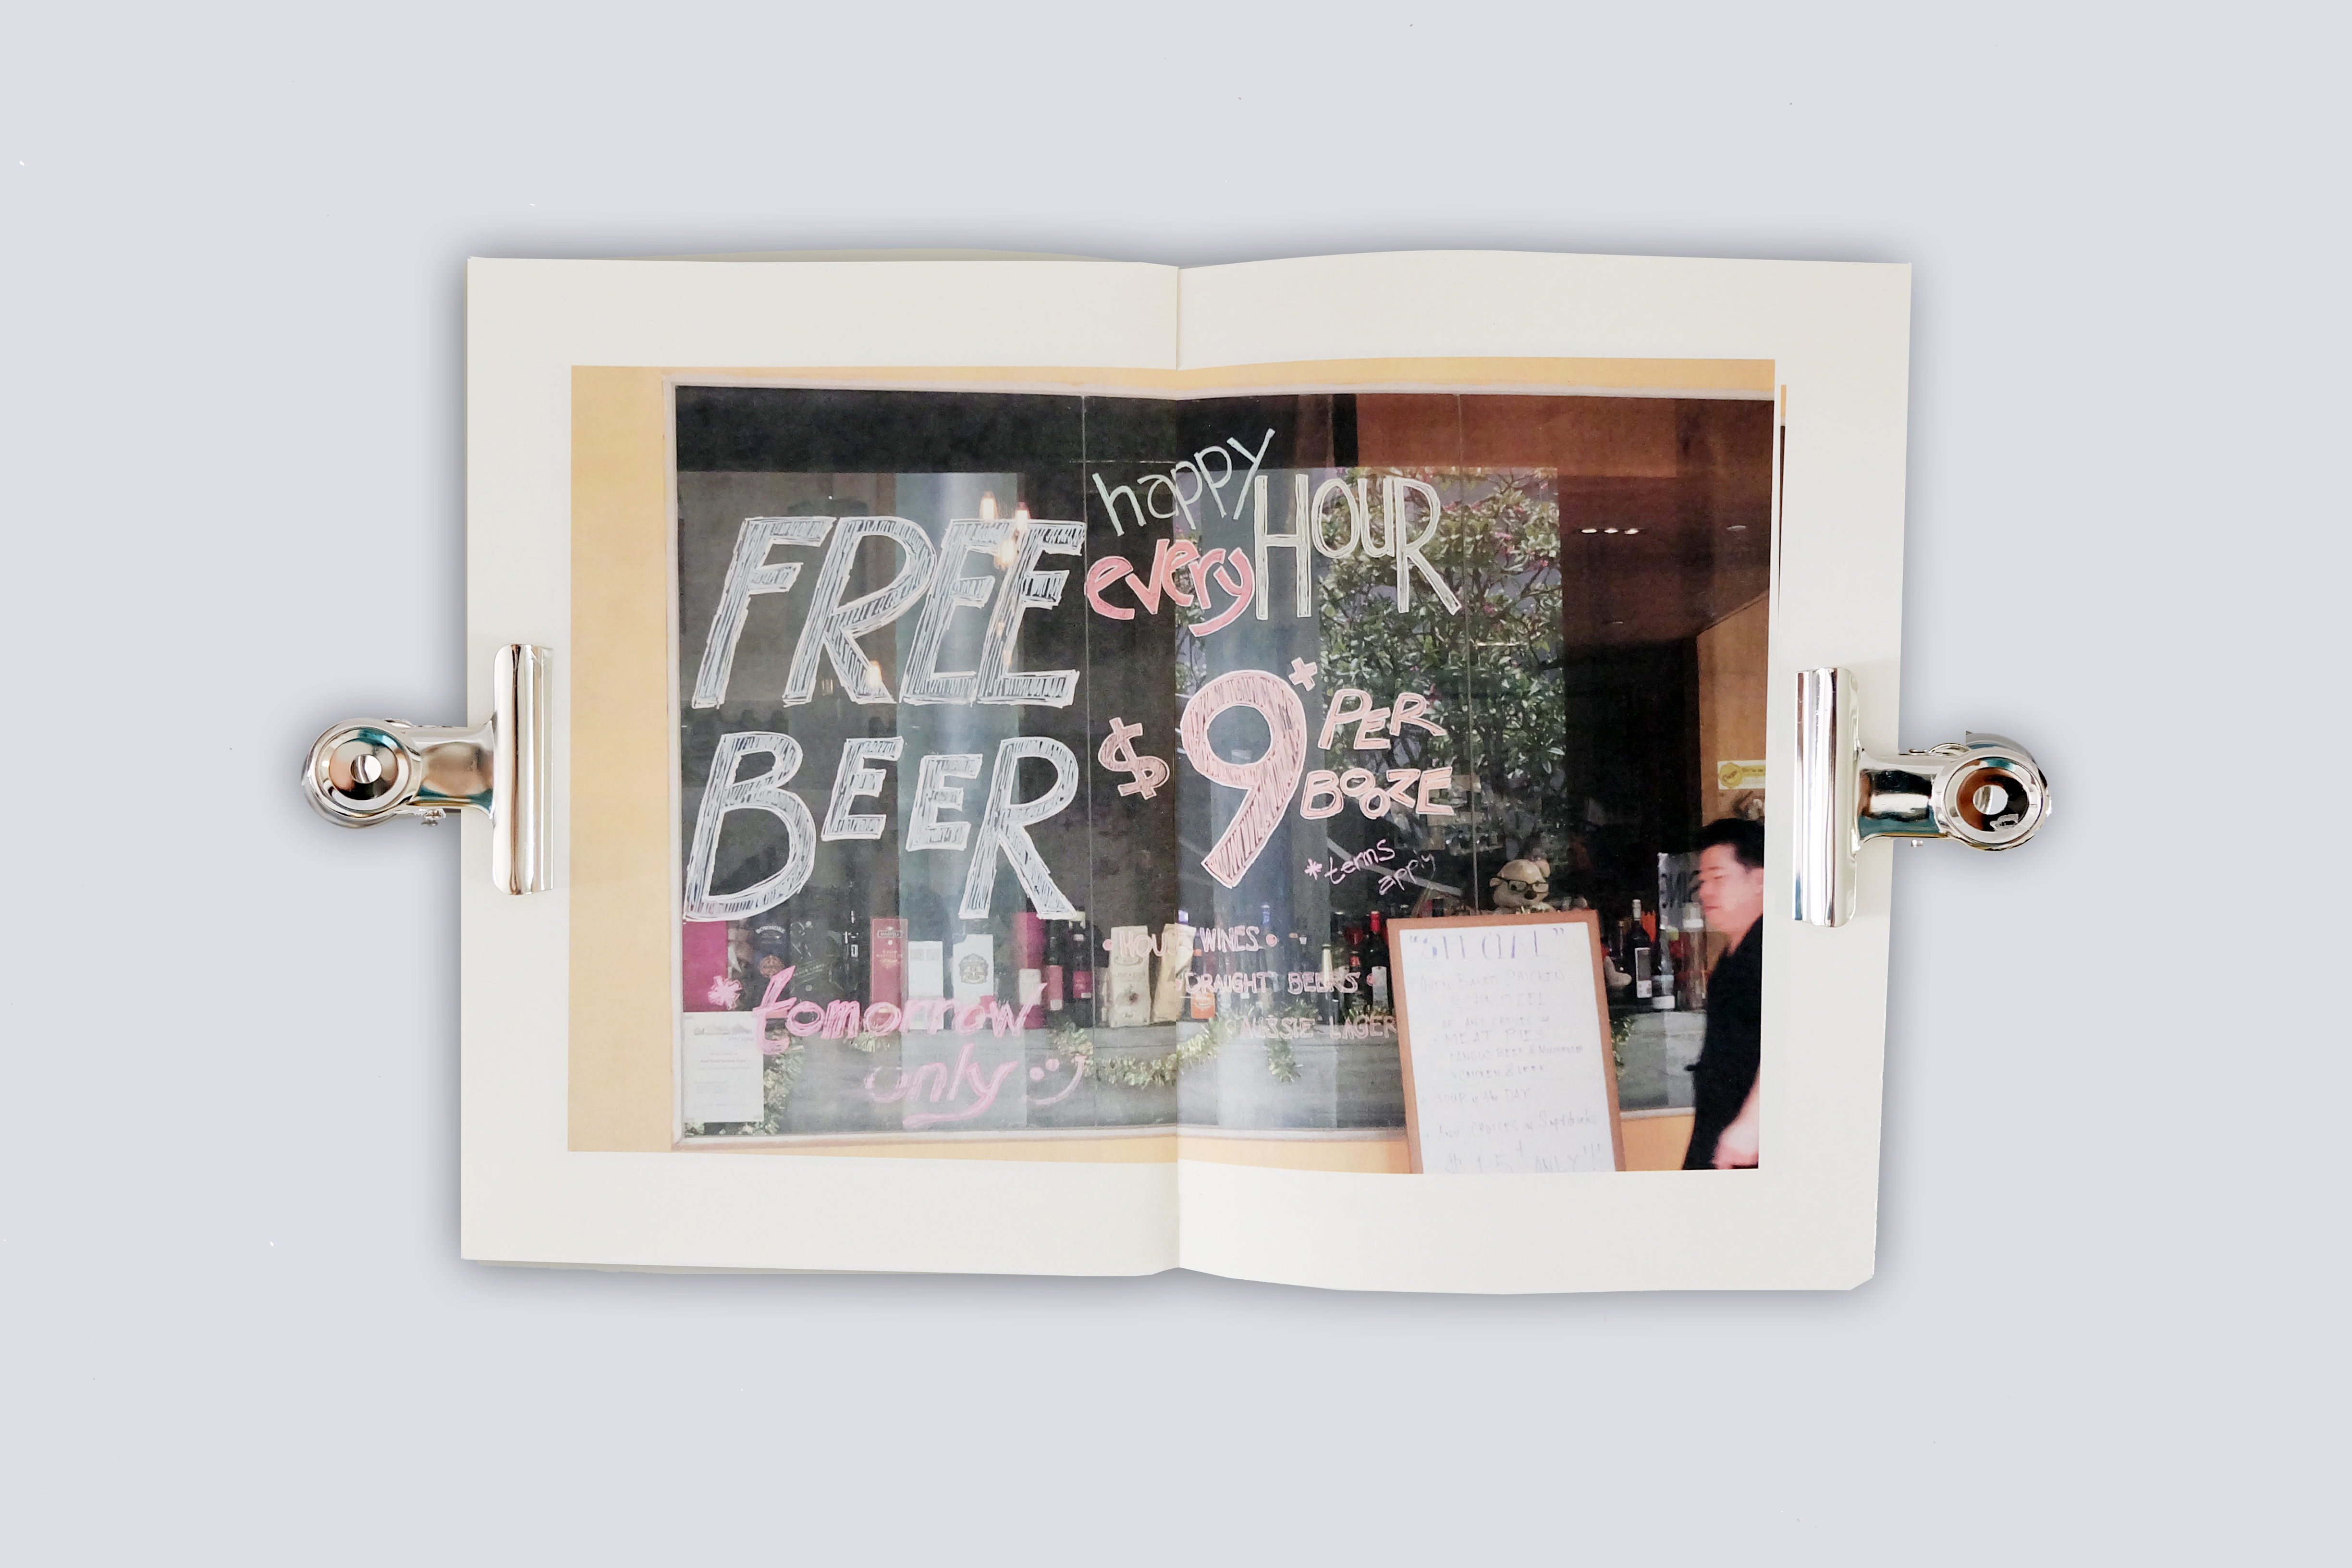 FREE
BEER
* tomorrow
only
happy
every HOUR
$9* PER
BOOZE
*terms
apply
• HOUSE WINES •
DRAUGHT BEERS •
AUSSIE LAGER
OVEN BAKED CHICKEN
SCHNITZEL
MEAT PIES
SOUP of the DAY
ONLY!!!